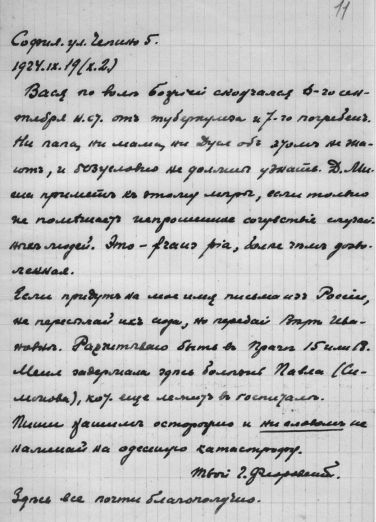 11
София. ул. Чепино 5.
1924.ix.19 (x.2)
Вася по воле Божией скончался 5-го сен-
тября н.ст. отъ туберкулеза и 7-го погребен.
Ни папа, ни мама, ни Дуся объ этомъ не зна-
ютъ, и безусловно не должны узнать. Д. Ми-
ша приметъ къ этому меры, если только
не помѣшаетъ непрошенное сочувствіе случай-
ныхъ людей. Это – fraus pia, более чемъ дозво-
ленная.
Если придутъ на мое имя письма изъ Россіи,
не пересылай ихъ сюда, но передай Вере Ива-
новне. Разсчитываю быть въ Праге 15 или 18.
Меня задержала здесь болезнь Павла (Си-
монова), кот. еще лежитъ въ госпитале.
Пиши нашимъ осторожно и ни словомъ не
намекай на одесскую катастрофу.
Твой Г. Флоровский.
Здесь все почти благополучно.